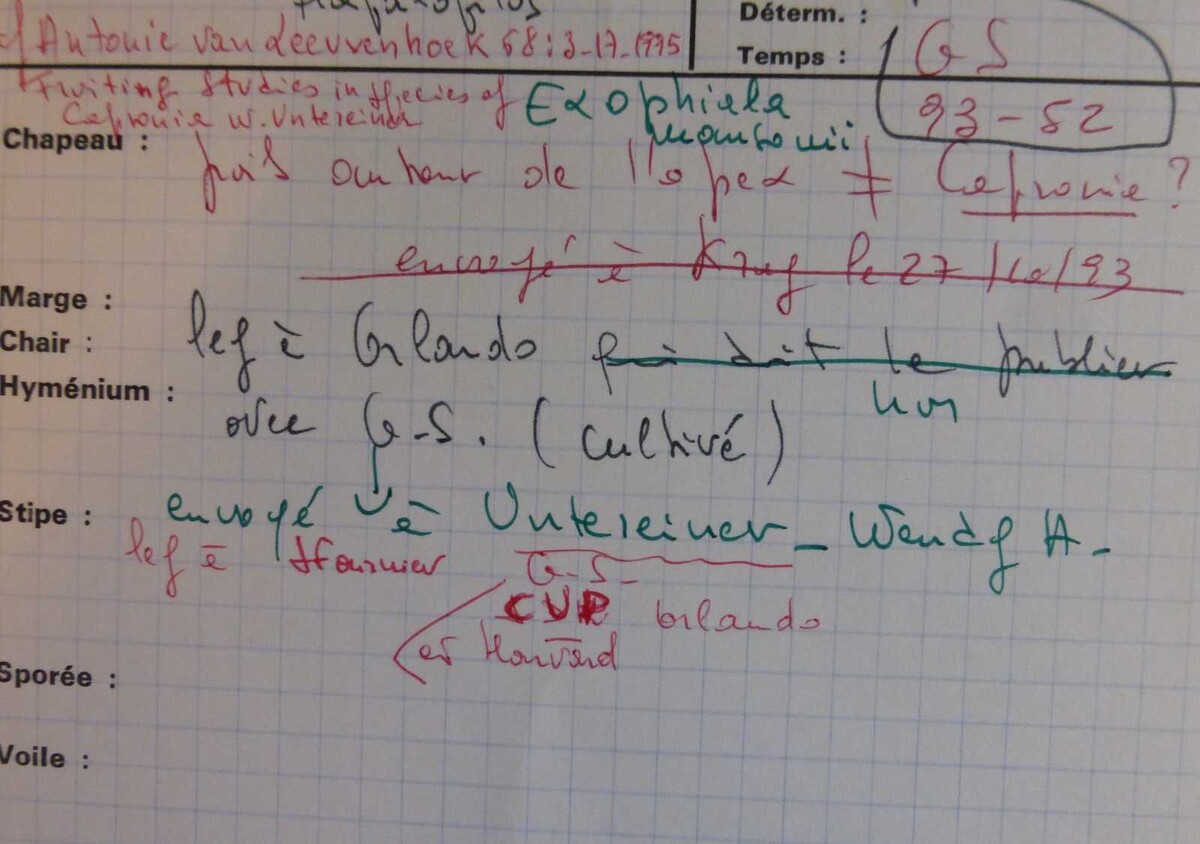 Déterm. :
Antonie van Leeuwenhoek 68: 3-17-1995
Temps : GS
Fruiting Studies in species of Exophiala
93-52
Capronia W. Untereiner mansonii
Chapeau :
de l'apex ≠ Capronia ?
envoyé à Krug le 27/10/93
Marge :
leg à Orlando qui doit le publier
Chair :
Hyménium :
non
avec G.S. (cultivé)
Stipe :
envoyé à Untereiner - Wendy A -
leg à G-S-
CUP Orlando
et Harvard
Sporée :
Voile :